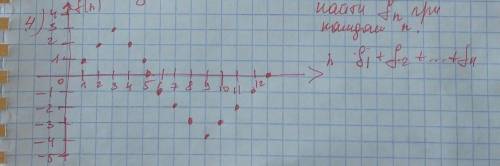 4) f(n)
найти fn при
каждом n.
f1 + f2 + ... + fn
n
4
3
2
1
0
1 2 3 4 5 6 7 8 9 10 11 12
-1
-2
-3
-4
-5